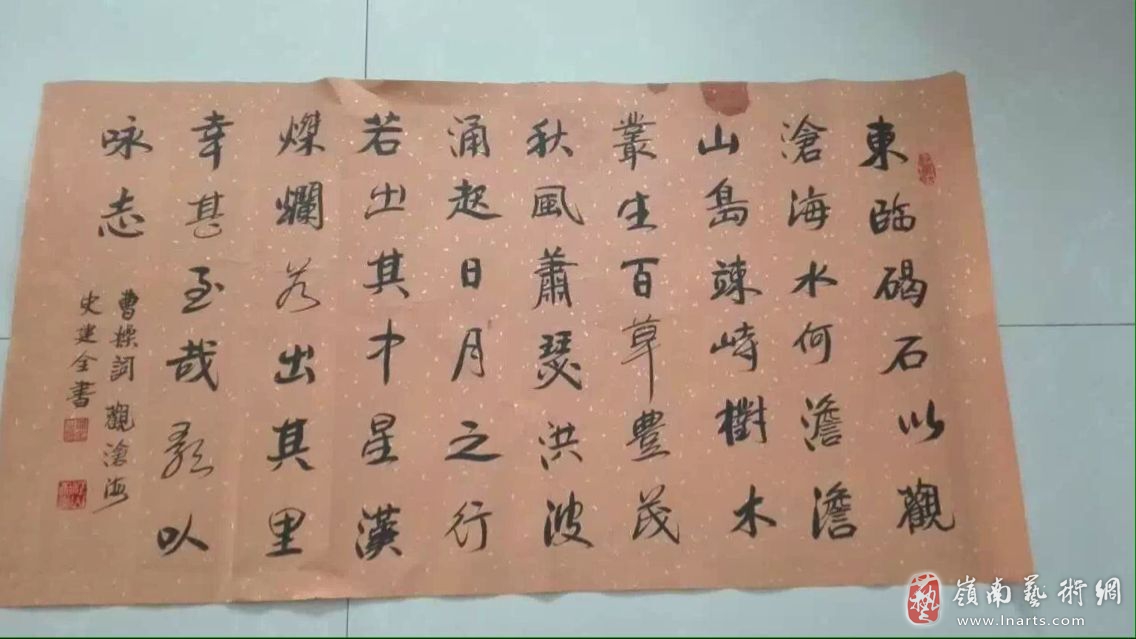 東臨碣石以觀
滄海水何澹澹
山島竦峙樹木
叢生百草豊茂
秋風蕭瑟洪波
涌起日月之行
若出其中星漢
燦爛若出其里
幸甚至哉歌以
咏志
曹操詞觀滄海
史建全書
嶺南藝術網
www.lnarts.com